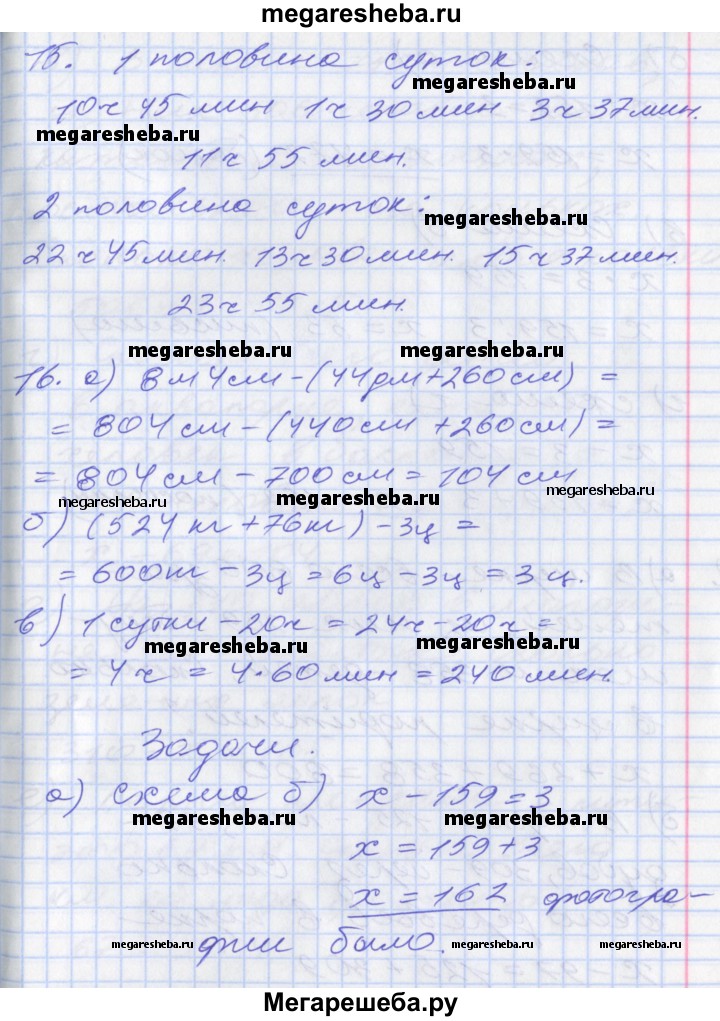 megaresheba.ru
15. 1 половина суток:
megaresheba.ru
10ч 45 мин 1ч 30 мин 3ч 37 мин.
megaresheba.ru
11ч 55 мин.
2 половина суток:
megaresheba.ru
22 ч 45 мин. 13ч 30 мин. 15ч 37 мин.
23ч 55 мин.
megaresheba.ru megaresheba.ru
16. а) 8м 4см - (44дм + 260см) =
= 804 см - (440см + 260см) =
= 804 см - 700см = 104 см
megaresheba.ru megaresheba.ru megaresheba.ru
б) (524 кг + 76кг) - 3ц =
= 600кг - 3ц = 6ц - 3ц = 3 ц.
в) 1 сутки - 20ч = 24ч - 20ч =
megaresheba.ru megaresheba.ru
= 4ч = 4·60 мин = 240 мин.
Задачи.
а) схема б) x - 159 = 3
megaresheba.ru megaresheba.ru
x = 159 + 3
megaresheba.ru megaresheba.ru
x = 162 фотогра-
фии было.
megaresheba.ru megaresheba.ru megaresheba.ru
Мегарешеба.ру